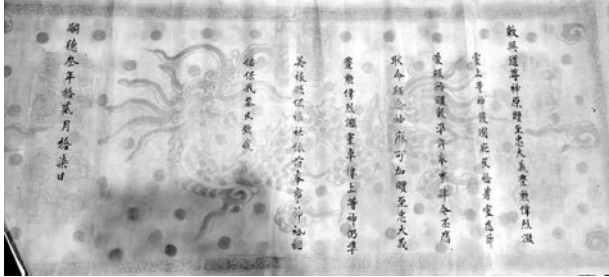 敕興道等神原贈至忠大義豐勳偉烈灝
靈上等神護國庇民稔著靈應節
蒙頒給贈敕準許奉事肆今丕膺
耿命緬念神庥可加贈至忠大義
豐勳偉烈灝靈卓偉上等神仍準
美祿縣保祿社依舊奉事神其相
佑保我黎民欽哉
嗣德叁年拾貳月拾柒日